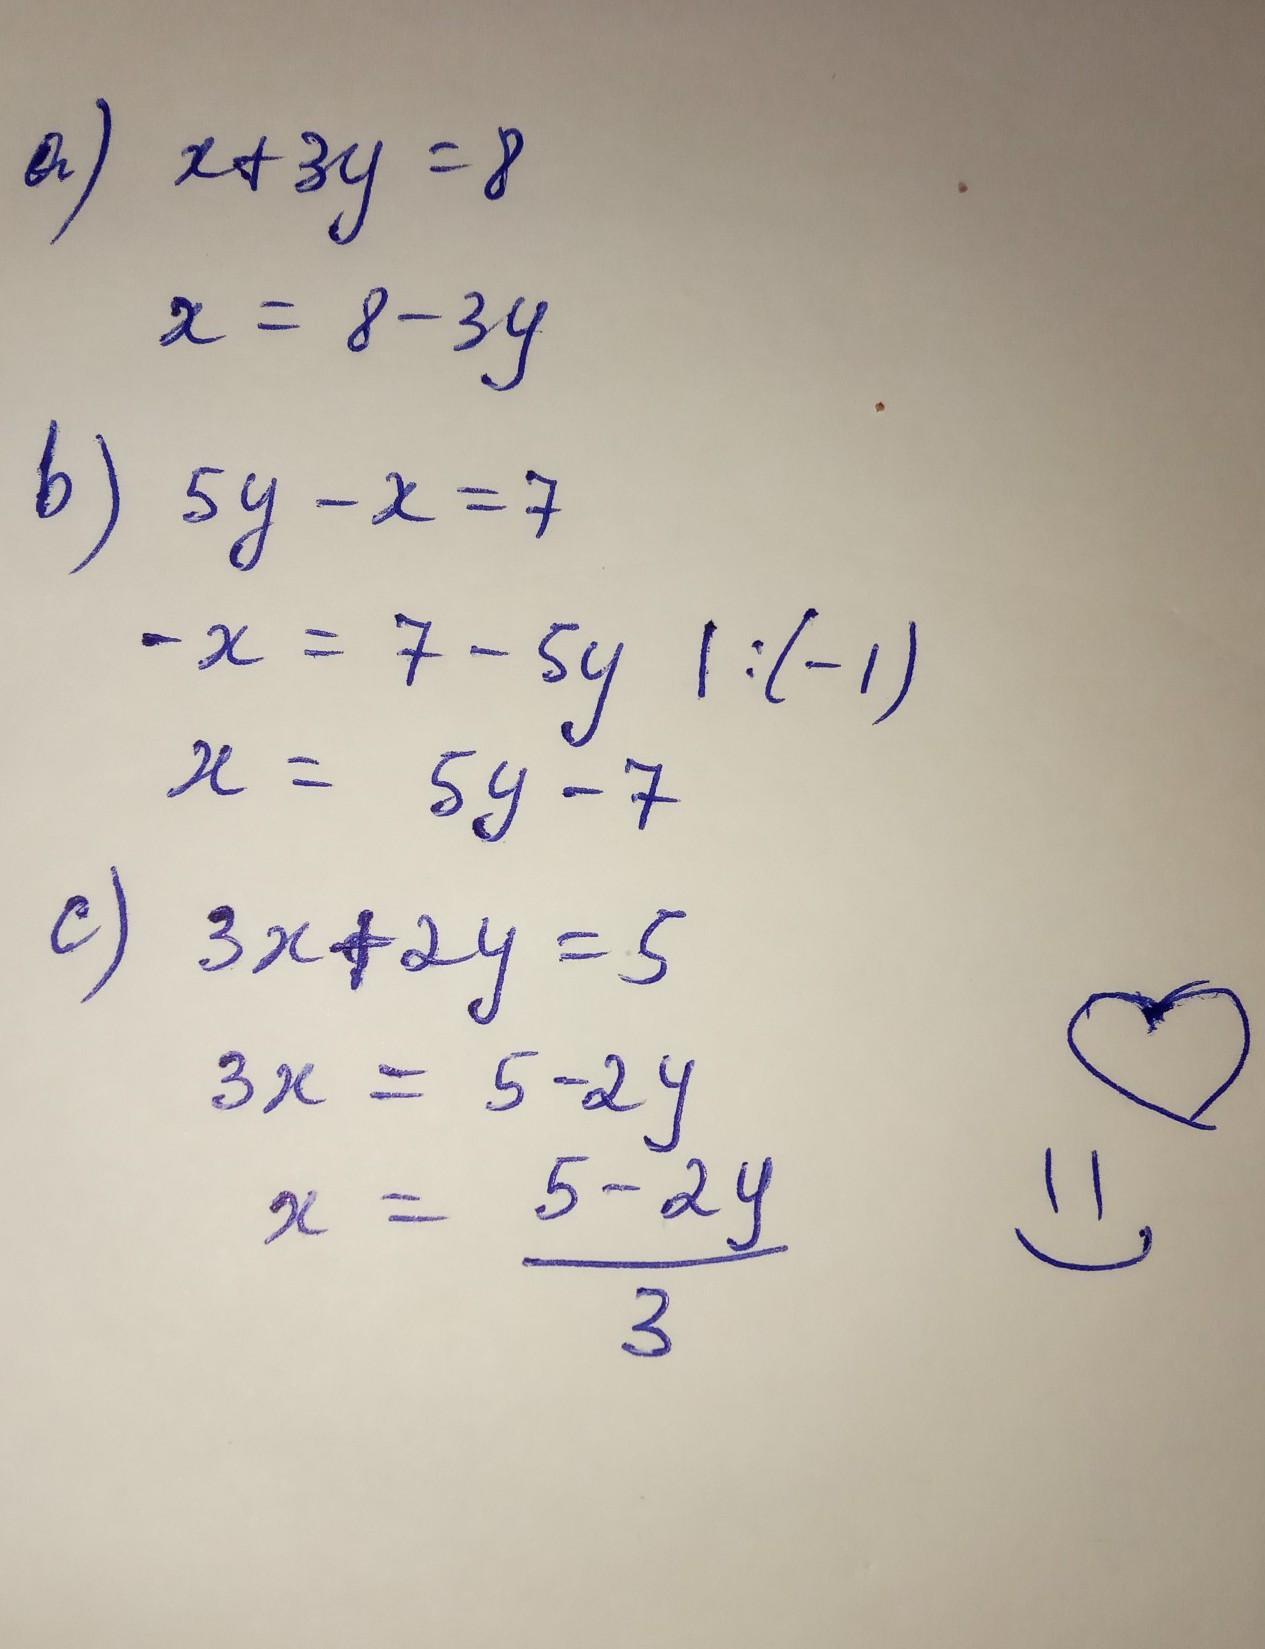 a) x+3y=8
x = 8-3y
b) 5y-x=7
-x = 7-5y |:(-1)
x = 5y-7
c) 3x+2y=5
3x = 5-2y
x = 5-2y
3